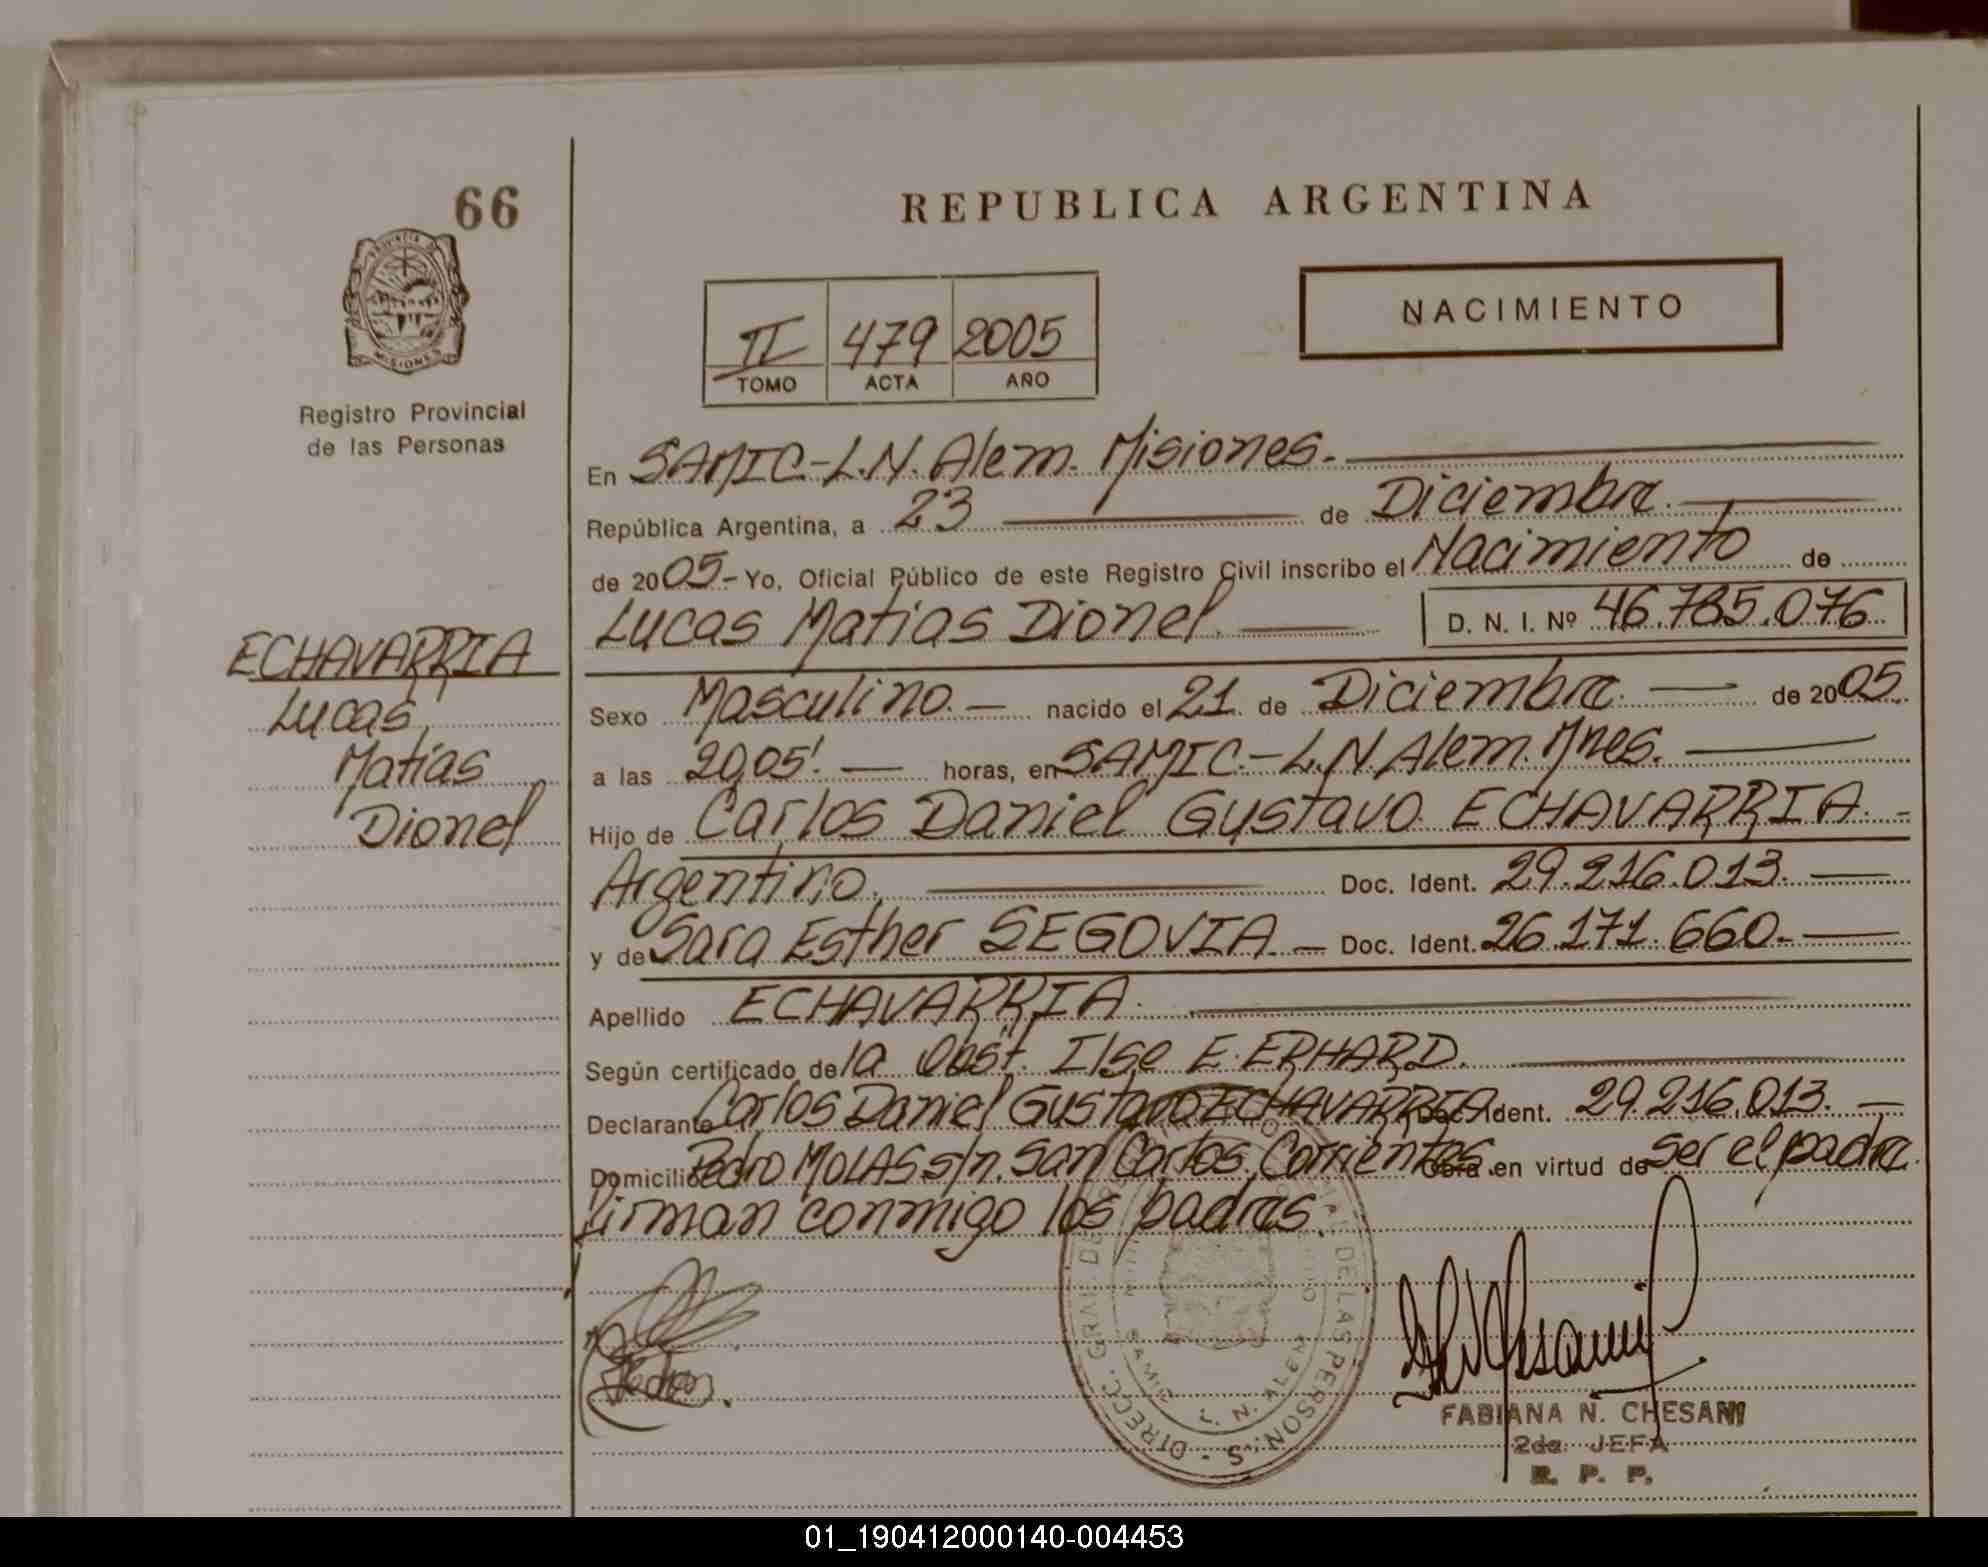 66
REPUBLICA ARGENTINA
PROVINCIA DE
MISIONES
Registro Provincial
de las Personas
II 479 2005
TOMO ACTA AÑO
NACIMIENTO
En SAMIC-L.N. Alem. Misiones.-
República Argentina, a 23 de Diciembre.
de 2005.- Yo, Oficial Público de este Registro Civil inscribo el Nacimiento de
Lucas Matias Dionel. D. N. I. Nº 46.785.076
ECHAVARRIA
Lucas
Matías
Dionel
Sexo Masculino.- nacido el 21 de Diciembre. de 2005
a las 20,05'. horas, en SAMIC.-L.N Alem. Mnes.
Hijo de Carlos Daniel Gustavo ECHAVARRIA.-
Argentino. Doc. Ident. 29.216.013.
y de Sara Esther SEGOVIA.- Doc. Ident. 26.171.660.-
Apellido ECHAVARRIA.
Según certificado de la Obst. Ilse E. ERHARD.
Declarante Carlos Daniel Gustavo ECHAVARRIA Doc. Ident. 29.216.013.-
Domicilio Pedro MOLAS s/n. San Carlos, Corrientes Obra en virtud de ser el padre.
firman conmigo los padres.
DIRECC. GRAL. DE LAS PERSONAS
SAMIC
L. N. ALEM
FABIANA N. CHESANI
2da. JEFA
R. P. P.
01_190412000140-004453